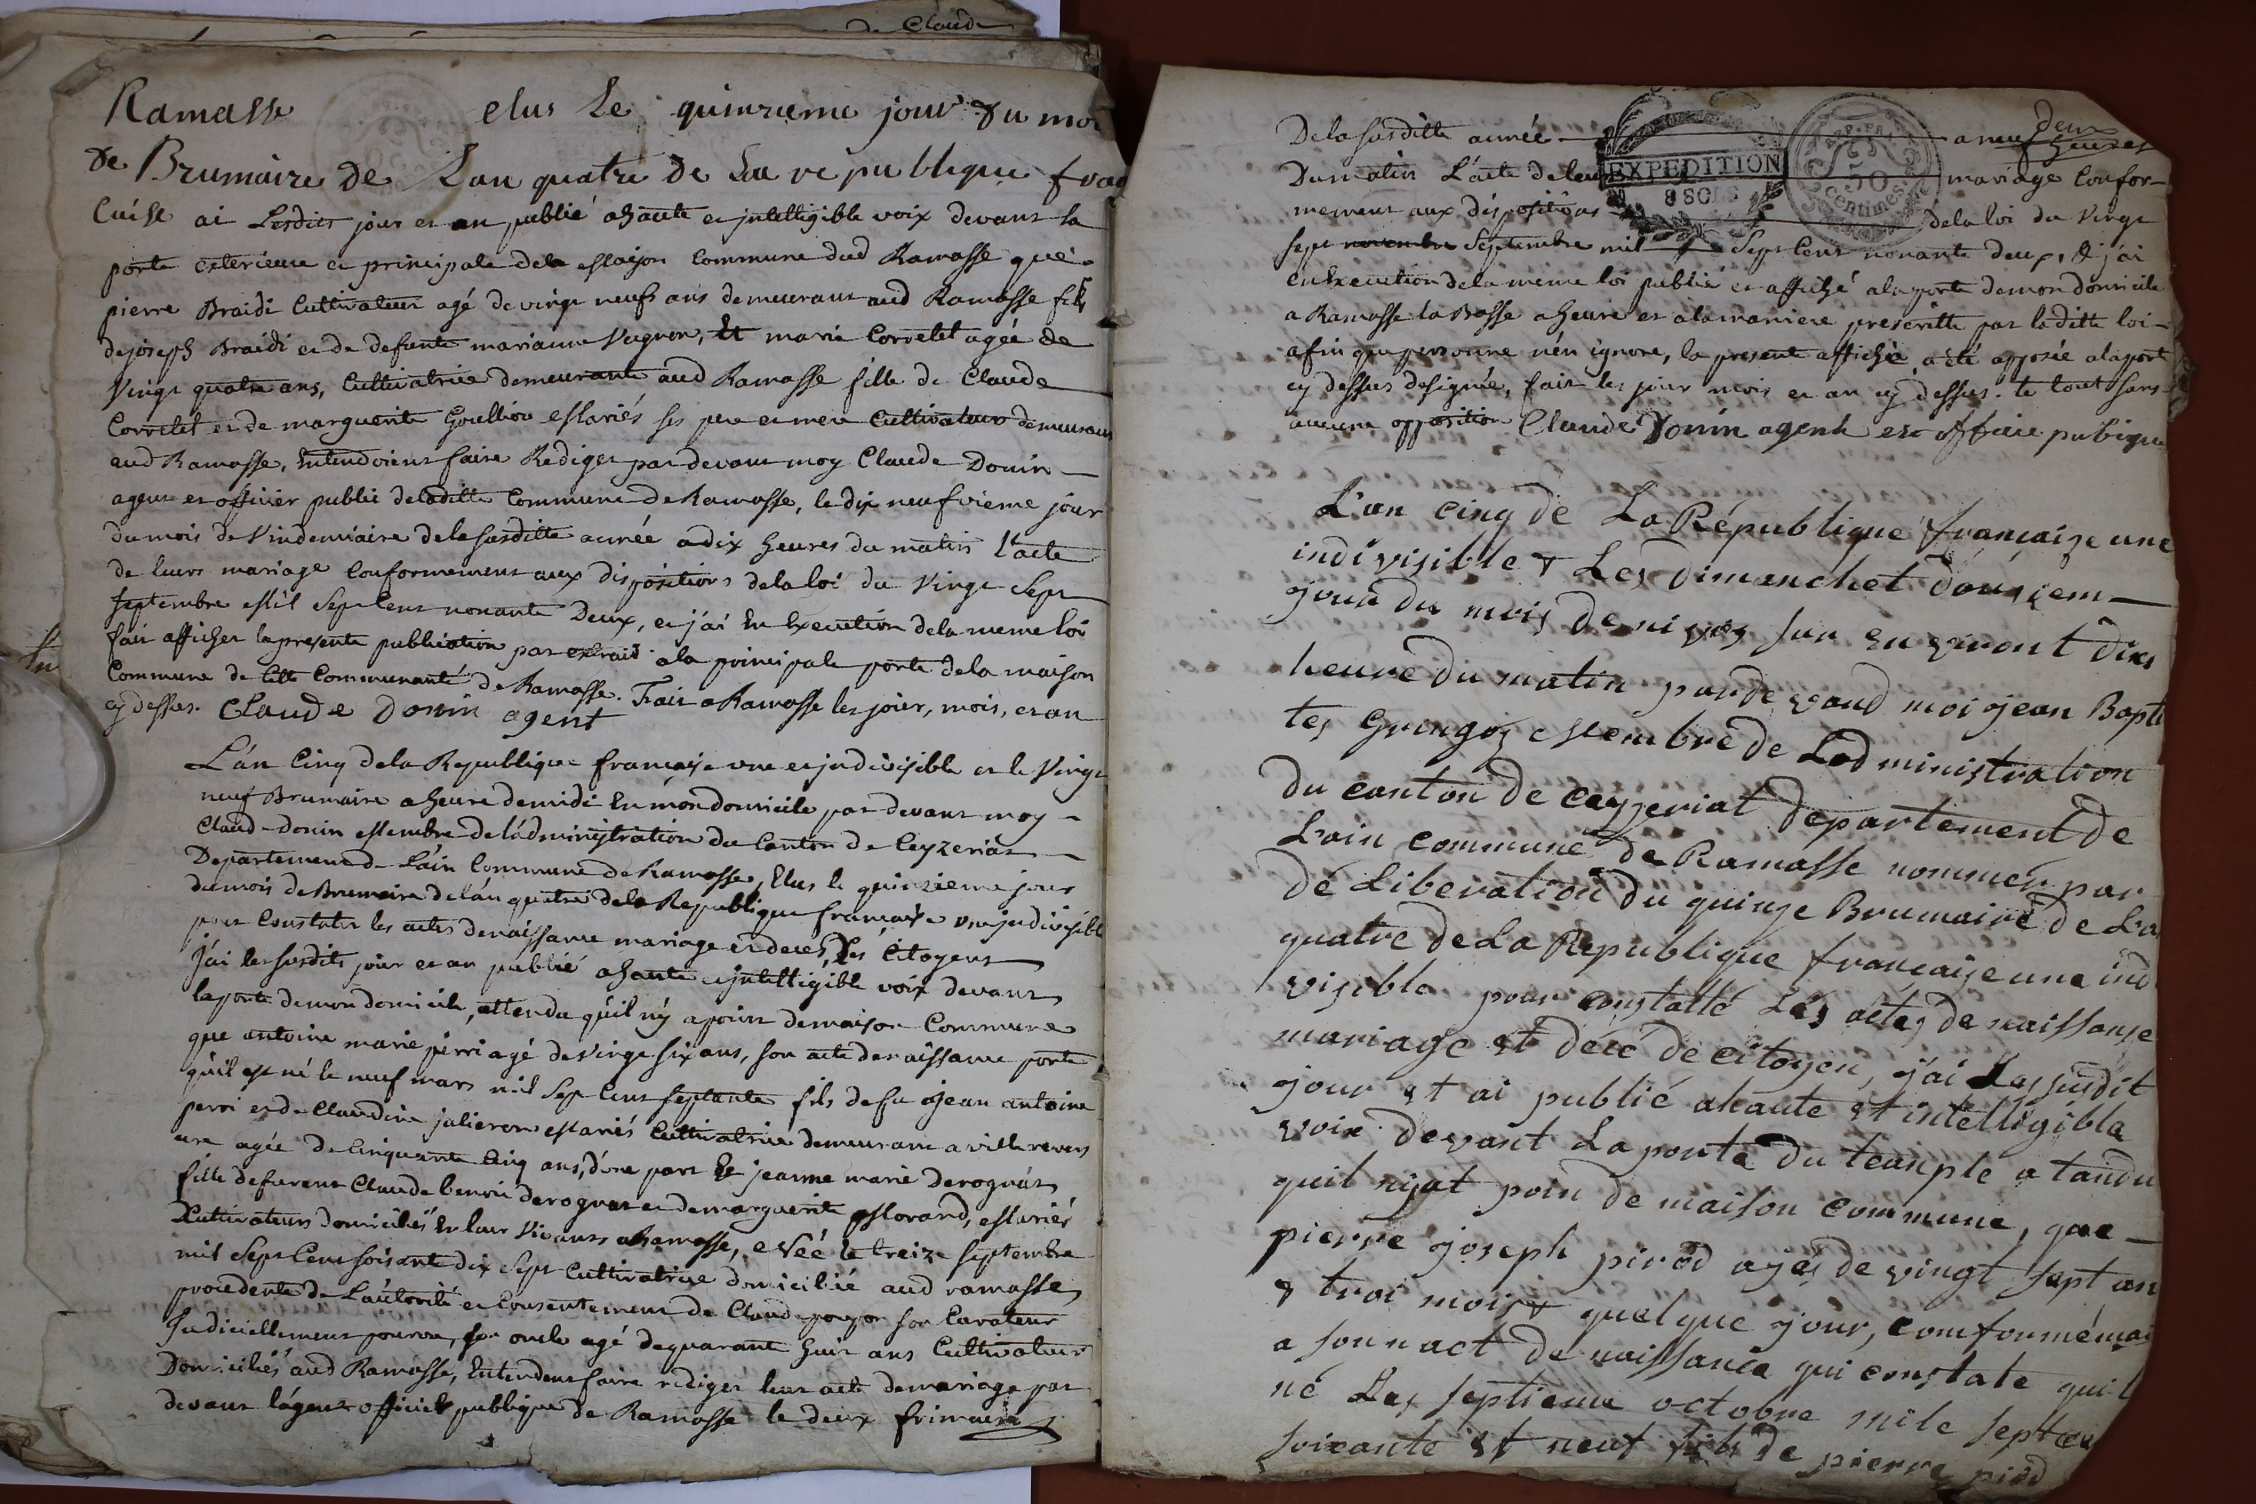 de Claude
Ramasse elus Le quinzieme jour du moi
de Brumaire de Lan quatre de La republique fran
Caise ai Lesdits jour et an publié ahaute et jntelligible voix devant la
porte exterieure et principale dela Maison Commune dud Ramasse que
pierre Braidi Cultivateur agé de vingt neufs ans demeurant aud Ramasse fils
de joseph Braidi et de defunte marianne Vagnon, Et marie Corretel agée de
Vingt quatre ans, Cultivatrice demeurante aud Ramasse fille de Claude
Corretel et de marguerite Goullion Mariés ses pere et mere Cultivateurs demeurant
aud Ramasse, Entendoient faire Rediger par devant moy Claude Donin
agent et officier public deladitte Commune de Ramasse, le dix neufvieme jour
du mois de Vindemiaire dela susditte année adix heures du matin l'acte
de leurs mariage Conformement aux dispositions dela loi du Vingt Sept
Septembre Mil Sept Cent nonante Deux, et j'ai En Execution dela meme loi
fait afficher la presente publication par extrait ala principale porte dela maison
Commune de Communauté de Ramasse. Fait a Ramasse les jour, mois, et an
cy dessus. Claude Donin agent
L'an Cinq dela Republique française une et jndivisible et le Vingt
neuf Brumaire a heure demidi En mon domicile par devant moy
Claud donin Membre de l'administration du Canton de Ceyzeriat
Departement de L'ain Commune de Ramasse, Elus le quinzieme jour
du mois de Brumaire de l'an quatre dela Republique française une jndivisible
pour Constater les actes de naissance mariage et deces, des Citoyens
j'ai les susdits jour et an publié ahaute et jntelligible voix devant
la porte de mon domicile, attendu qu'il n'y a point de maison Commune
que antoine marie perri agé de Vingt six ans, son acte de naissance porte
qu'il est né le neuf mars mil Sept Cent septante fils de fu jean antoine
perri et de Claudine julieron Mariés Cultivatrice demeurant a villerever
sure agée de Cinquante Cinq ans, d'une part Et jeanne marie derognat
fille de furent Claude benoit derognat et de marguerite Morand, Mariés
Cultivateurs domiciliés En leur Vivants a Ramasse, née le treize septembre
mil Sept Cent soixante dix Sept Cultivatrice domiciliée aud ramasse
procedente de L'autorité et Consentement de Claude son Curateur
judiciellement pourvu, son oncle agé de quarant huit ans Cultivateur
Domiciliés aud Ramasse, Entendent faire rediger leur acte de mariage par
devant l'agent officier publique de Ramasse le deux frimaire
Dela susditte année a neuf heures
deux
Du matin L'acte de leur mariage Confor-
EXPEDITION
8 SOLS
REP. FRA.
50
Centimes
mement aux dispositions dela loi du Vingt
sept novembre Septembre mil Sept Cent nonante deux, & j'ai
en Execution dela meme loi publié et affiché ala porte de mon domicile
a Ramasse la Basse a heure et ala maniere prescritte par laditte loi
afin que personne n'en ignore, la presente affiche a été apposée ala porte
cy dessus designée, fait les jour mois et an cy dessus. le tout sans
aucune opposition Claude Donin agent est officie pubique
L'an cinq de La République françaize une
indivisible & Les Dimanchet douziem
jour du mois de nivos sur environt dixs
heure du matin par de vand moi jean Bapti
tes Gringoz Membre de Ladministration
du canton de ceyzeriat département de
L'ain commune de Ramasse nommer par
déliberation du quinze Brumaire de L'a
quatre de La République françaize une ind
visible pour constatté Les actes de naissanse
mariage et décé de citoyen, j'ai Les susdit
jour et ai publié ahaute et intelligible
voix devant La porte du temple atandu
quil nyat poin de maison commune, que
pierre joseph pirod ages de vingt sept an
& troi mois & quelque jour, comformémai
a sonn act de naissance qui constate quil
né Les septieme octobre mile septce
soixante et neuf fils de pierre pirod